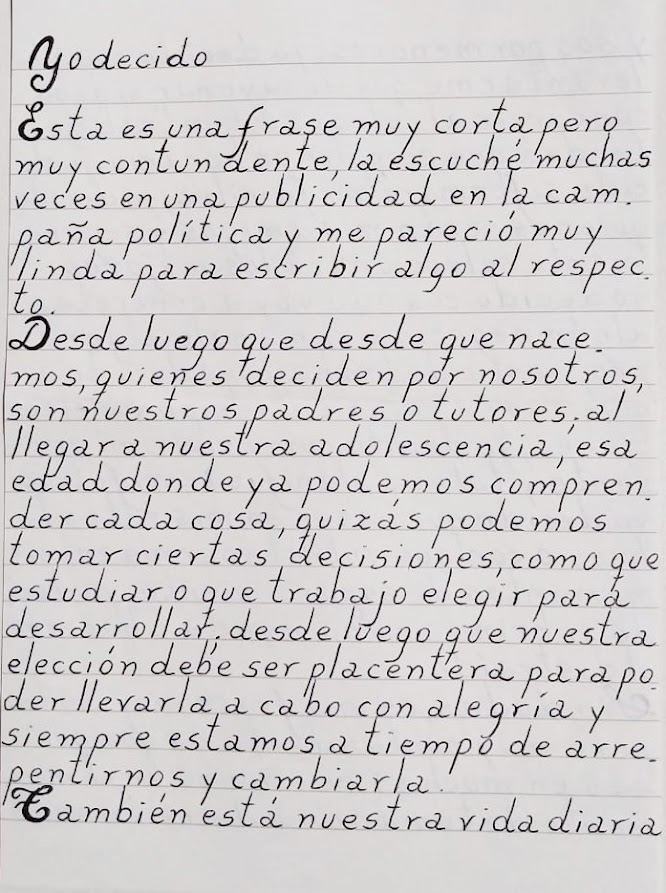 Yo decido
Esta es una frase muy corta pero
muy contundente, la escuché muchas
veces en una publicidad en la cam.
paña política y me pareció muy
linda para escribir algo al respec.
to.
Desde luego que desde que nace.
mos, quienes deciden por nosotros,
son nuestros padres o tutores; al
llegar a nuestra adolescencia, esa
edad donde ya podemos compren.
der cada cosa, quizás podemos
tomar ciertas decisiones, como que
estudiar o que trabajo elegir para
desarrollar; desde luego que nuestra
elección debe ser placentera para po.
der llevarla a cabo con alegría y
siempre estamos a tiempo de arre.
pentirnos y cambiarla.
También está nuestra vida diaria